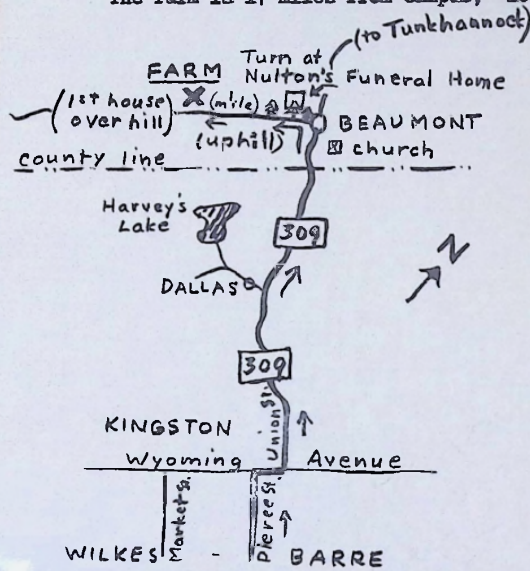 The farm is 17 miles from campus,
(to Tunkhannock)
FARM
Turn at
Nulton's Funeral Home
(1st house
over hill)
(mile)
(uphill)
BEAUMONT
church
county line
Harvey's
Lake
309
N
DALLAS
309
KINGSTON
Union St.
Wyoming Avenue
Market St.
Pierce St.
WILKES - BARRE